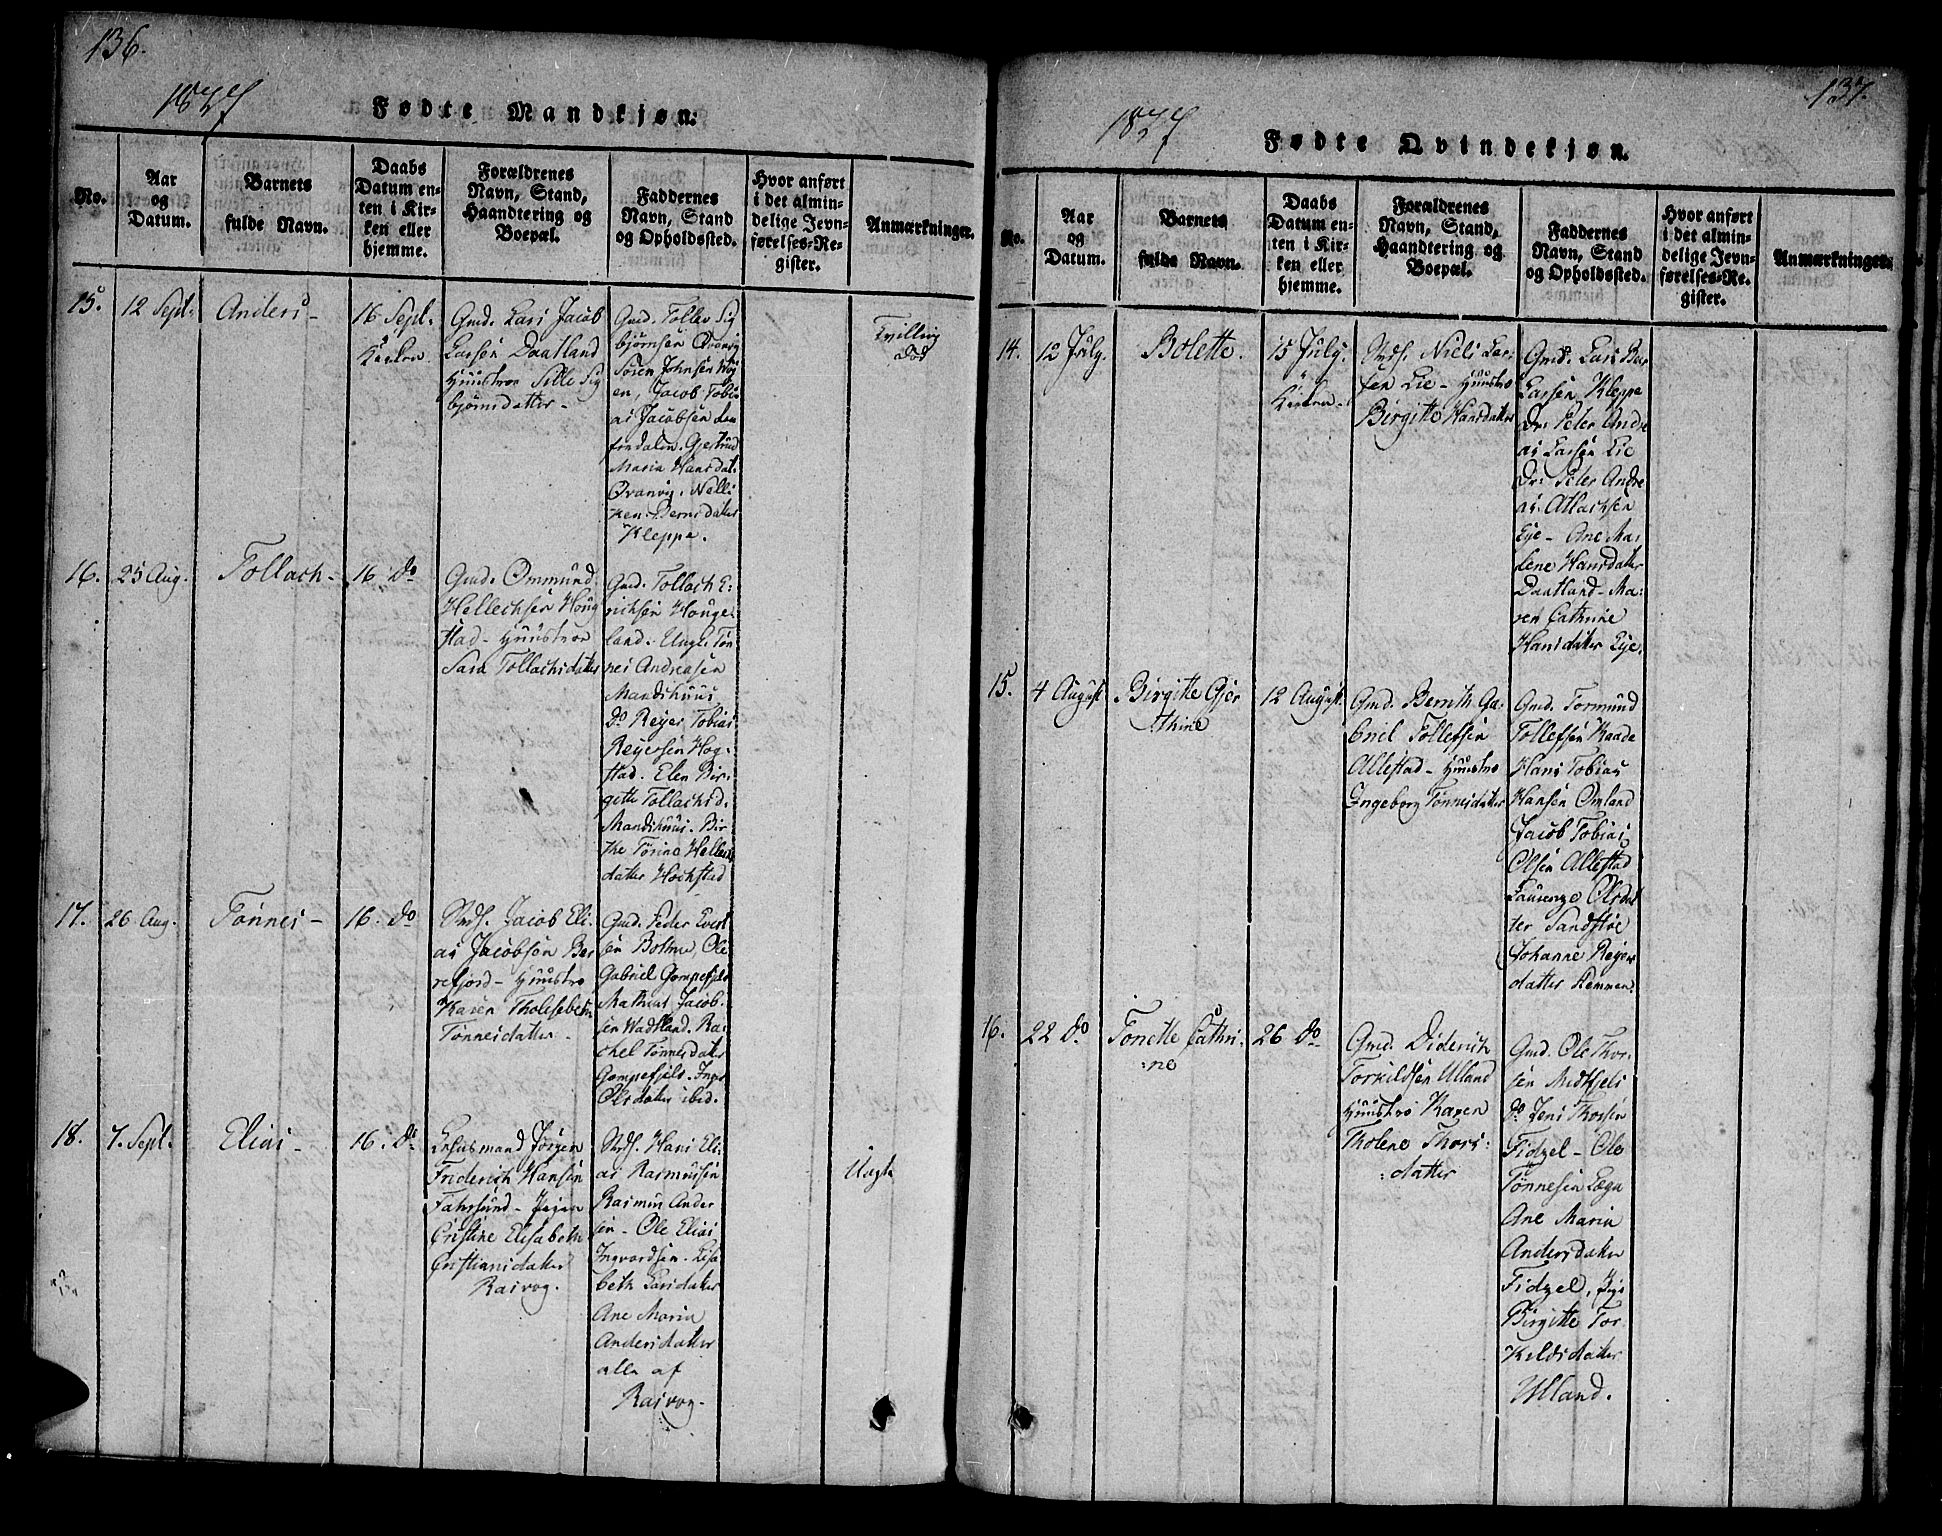 136.
1827
Fødte Mandkjøn.
No.
Aar
og
Datum.
Barnets
fulde Navn.
Daabs
Datum en-
ten i Kir-
ken eller
hjemme.
Forældrenes
Navn, Stand,
Haandtering og
Boepæl.
Faddernes
Navn, Stand
og Opholdssted.
Hvor anført
i det almin-
delige Jevn-
førelses-Re-
gister.
Anmærkninger.
15.
12 Sept.
Anders
16 Sept.
Kirken
Gmd. Lars Jacob
Larsen Daatland
Huustroe Sille Sig
bjørnsdatter
Gmd. Tollev Sig
bjørnsen Qvanvig
Søren Johnsen
en, Jacob Tobi-
as Jacobsen
Gjertrud
Maria Hansdat.
Qvanvig. Nelli
ken Berntsdatter
Kleppe.
Tvilling
død
16.
25 Aug.
Tollach
16. do
Gmd. Ommund
Hellechsen Houg
stad - Huustroe
Sara Tollachsdatter
Gmd. Tollach E-
richsen Houge-
land. Ungk. Tøn
nes Andreasen
Mandshuus
do Reyer Tobias
Reyersen Hog-
stad. Elen Bir-
gitte Tollachsd.
Mandshuus. Bir
the Tørine Hellechs
datter Hochstad
17.
26 Aug.
Tønnes
16. do
Jacob Eli-
as Jacobsen Ber
refjord - Huustroe
Karen Tholisebeth
Tønnesdatter
Gmd. Peder Evert
sen Botme, Ole
Gabriel Gompefjeld
Mathias Jacob-
sen Wadtland. Ra-
chel Tønnesdatter
Gompefjeld. Inger
Olsdatter ibid.
18.
7. Sept.
Elias
16. do
Jørgen
Friderich Hansen
Fahrsund - Pigen
Cristine Elisabeth
Cristiansdatter
Rasvog.
Hans Eli-
as Rasmussen
Rasmus Ander
sen - Ole Elias
Ingvardsen. Elisa
beth Larsdatter
Ane Maria
Andersdatter
alle af
Rasvog.
Uægte
137.
1827
Fødte Qvindekjøn.
No.
Aar
og
Datum.
Barnets
fulde Navn.
Daabs
Datum en-
ten i Kir-
ken eller
hjemme.
Forældrenes
Navn, Stand,
Haandtering og
Boepæl.
Faddernes
Navn, Stand
og Opholdssted.
Hvor anført
i det almin-
delige Jevn-
førelses-Re-
gister.
Anmærkninger.
14.
12 July.
Bolette.
15 July.
Kirken
Niels Lar-
sen Lie - Huustroe
Birgitte Hansdatter
Gmd. Lars
Larsen Kleppe
Do Peter Andre
as Larsen Lie
Do Peter Andre
as Atlachsen
Eye - Ane Ma-
lene Hansdatter
Daatland - Ma-
ren Cathrine
Hansdatter Eye.
15.
4 August
Birgitte Gjer
thine
12 August.
Gmd. Bernth Ga-
briel Tollefsen
Allestad - Huustroe
Ingeborg Tønnesdatter
Gmd. Tormund
Tollefsen Raade
Hans Tobias
Hansen Omland
Jacob Tobias
Olsen Allestad
Laurenze Olsdat
ter Sandstøe
Johanne Reyers
datter
16.
22 do
Tonette Cathri-
ne
26 do
Gmd. Diderich
Torkildsen Ulland
Huustroe Karen
Tholene Thors-
datter
Gmd. Ole Thor-
sen Midtfjeld
do Jens Thorsen
Fidzel - Ole
Tønnesen Ega
Ane Maria
Andersdatter
Fidzel,
Birgitte Tor-
kildsdatter
Ulland.